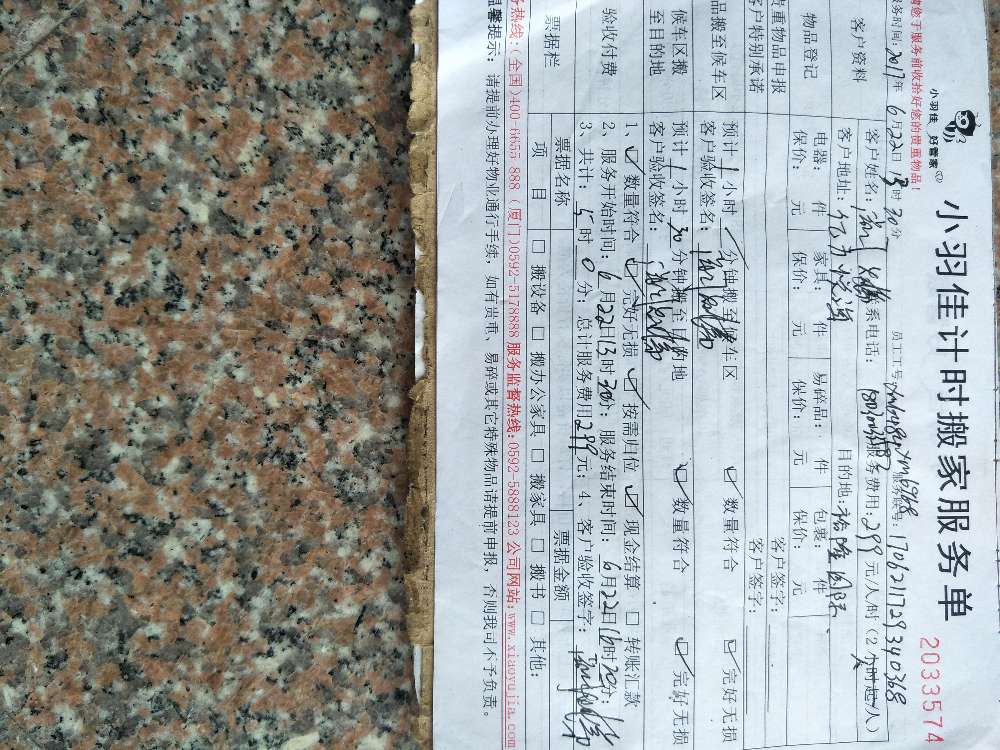 小羽佳 好管家
小羽佳计时搬家服务单
2033574
请您于服务前收拾好您的贵重物品!
服务时间: 2017年6月22日13时30分 员工工号 服务账号: 170621172934036B
客户资料
客户姓名: 联系电话: 服务费用: 299元/人/时(2小时起/人)
客户地址: 目的地:
物品登记
电器: 件 家具: 件 易碎品: 件 包裹: 件
保价: 元 保价: 元 保价: 元 保价: 元
贵重物品申报 客户签字:
客户特别承诺 客户签字:
物品搬至候车区
预计1小时 分钟搬至候车区 ☑数量符合 ☑完好无损
客户验收签名:
候车区搬至目的地
预计1小时30分钟搬至目的地 ☑数量符合 ☑完好无损
客户验收签名:
验收付费
1、☑数量符合 ☑完好无损 ☑按需归位 ☑现金结算 □转账汇款
2、服务开始时间: 6月22日13时30分; 服务结束时间: 6月22日16时30分;
3、共计: 5时0分; 总计服务费用299元; 4、客户验收签字:
票据栏
票据名称 票据金额
项目 □搬设备 □搬办公家具 □搬家具 □搬书 □其他:
服务热线:(全国)400-6655 888 (厦门)0592-5178888 服务监督热线:0592-5888123 公司网站:www.xiaoyujia.com
温馨提示: 请提前办理好物业通行手续, 如有贵重、易碎或其它特殊物品请提前申报, 否则我司不予负责。